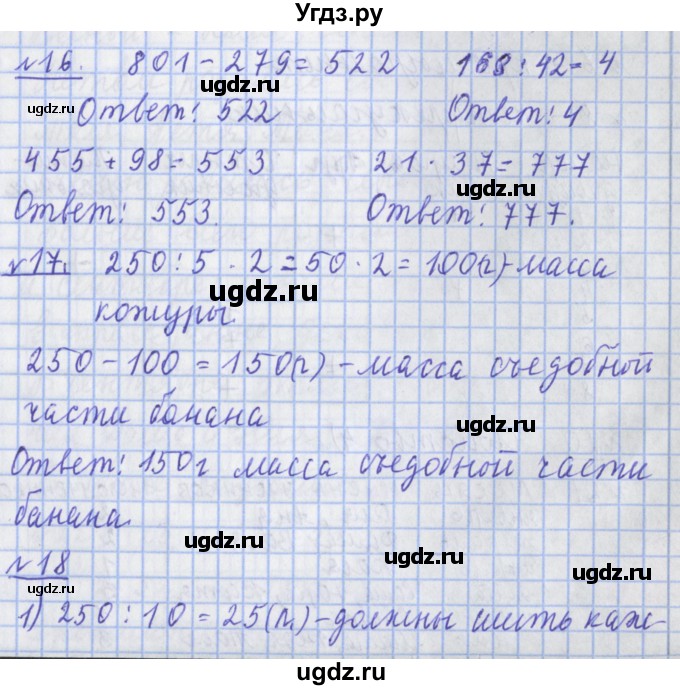 Угдз.ру
№16. 801 - 279 = 522 168 : 42 = 4
Ответ: 522 Ответ: 4
455 + 98 = 553 21 · 37 = 777
Ответ: 553. Ответ: 777.
№17. 250 : 5 · 2 = 50 · 2 = 100(г) - масса
кожуры.
250 - 100 = 150(г) - масса съедобной
части банана
Ответ: 150г масса съедобной части
банана.
№18
1) 250 : 10 = 25(п.) - должны шить каж-
ugdz.ru
ugdz.ru
ugdz.ru
ugdz.ru
ugdz.ru
ugdz.ru
ugdz.ru
ugdz.ru
ugdz.ru
ugdz.ru
ugdz.ru
ugdz.ru